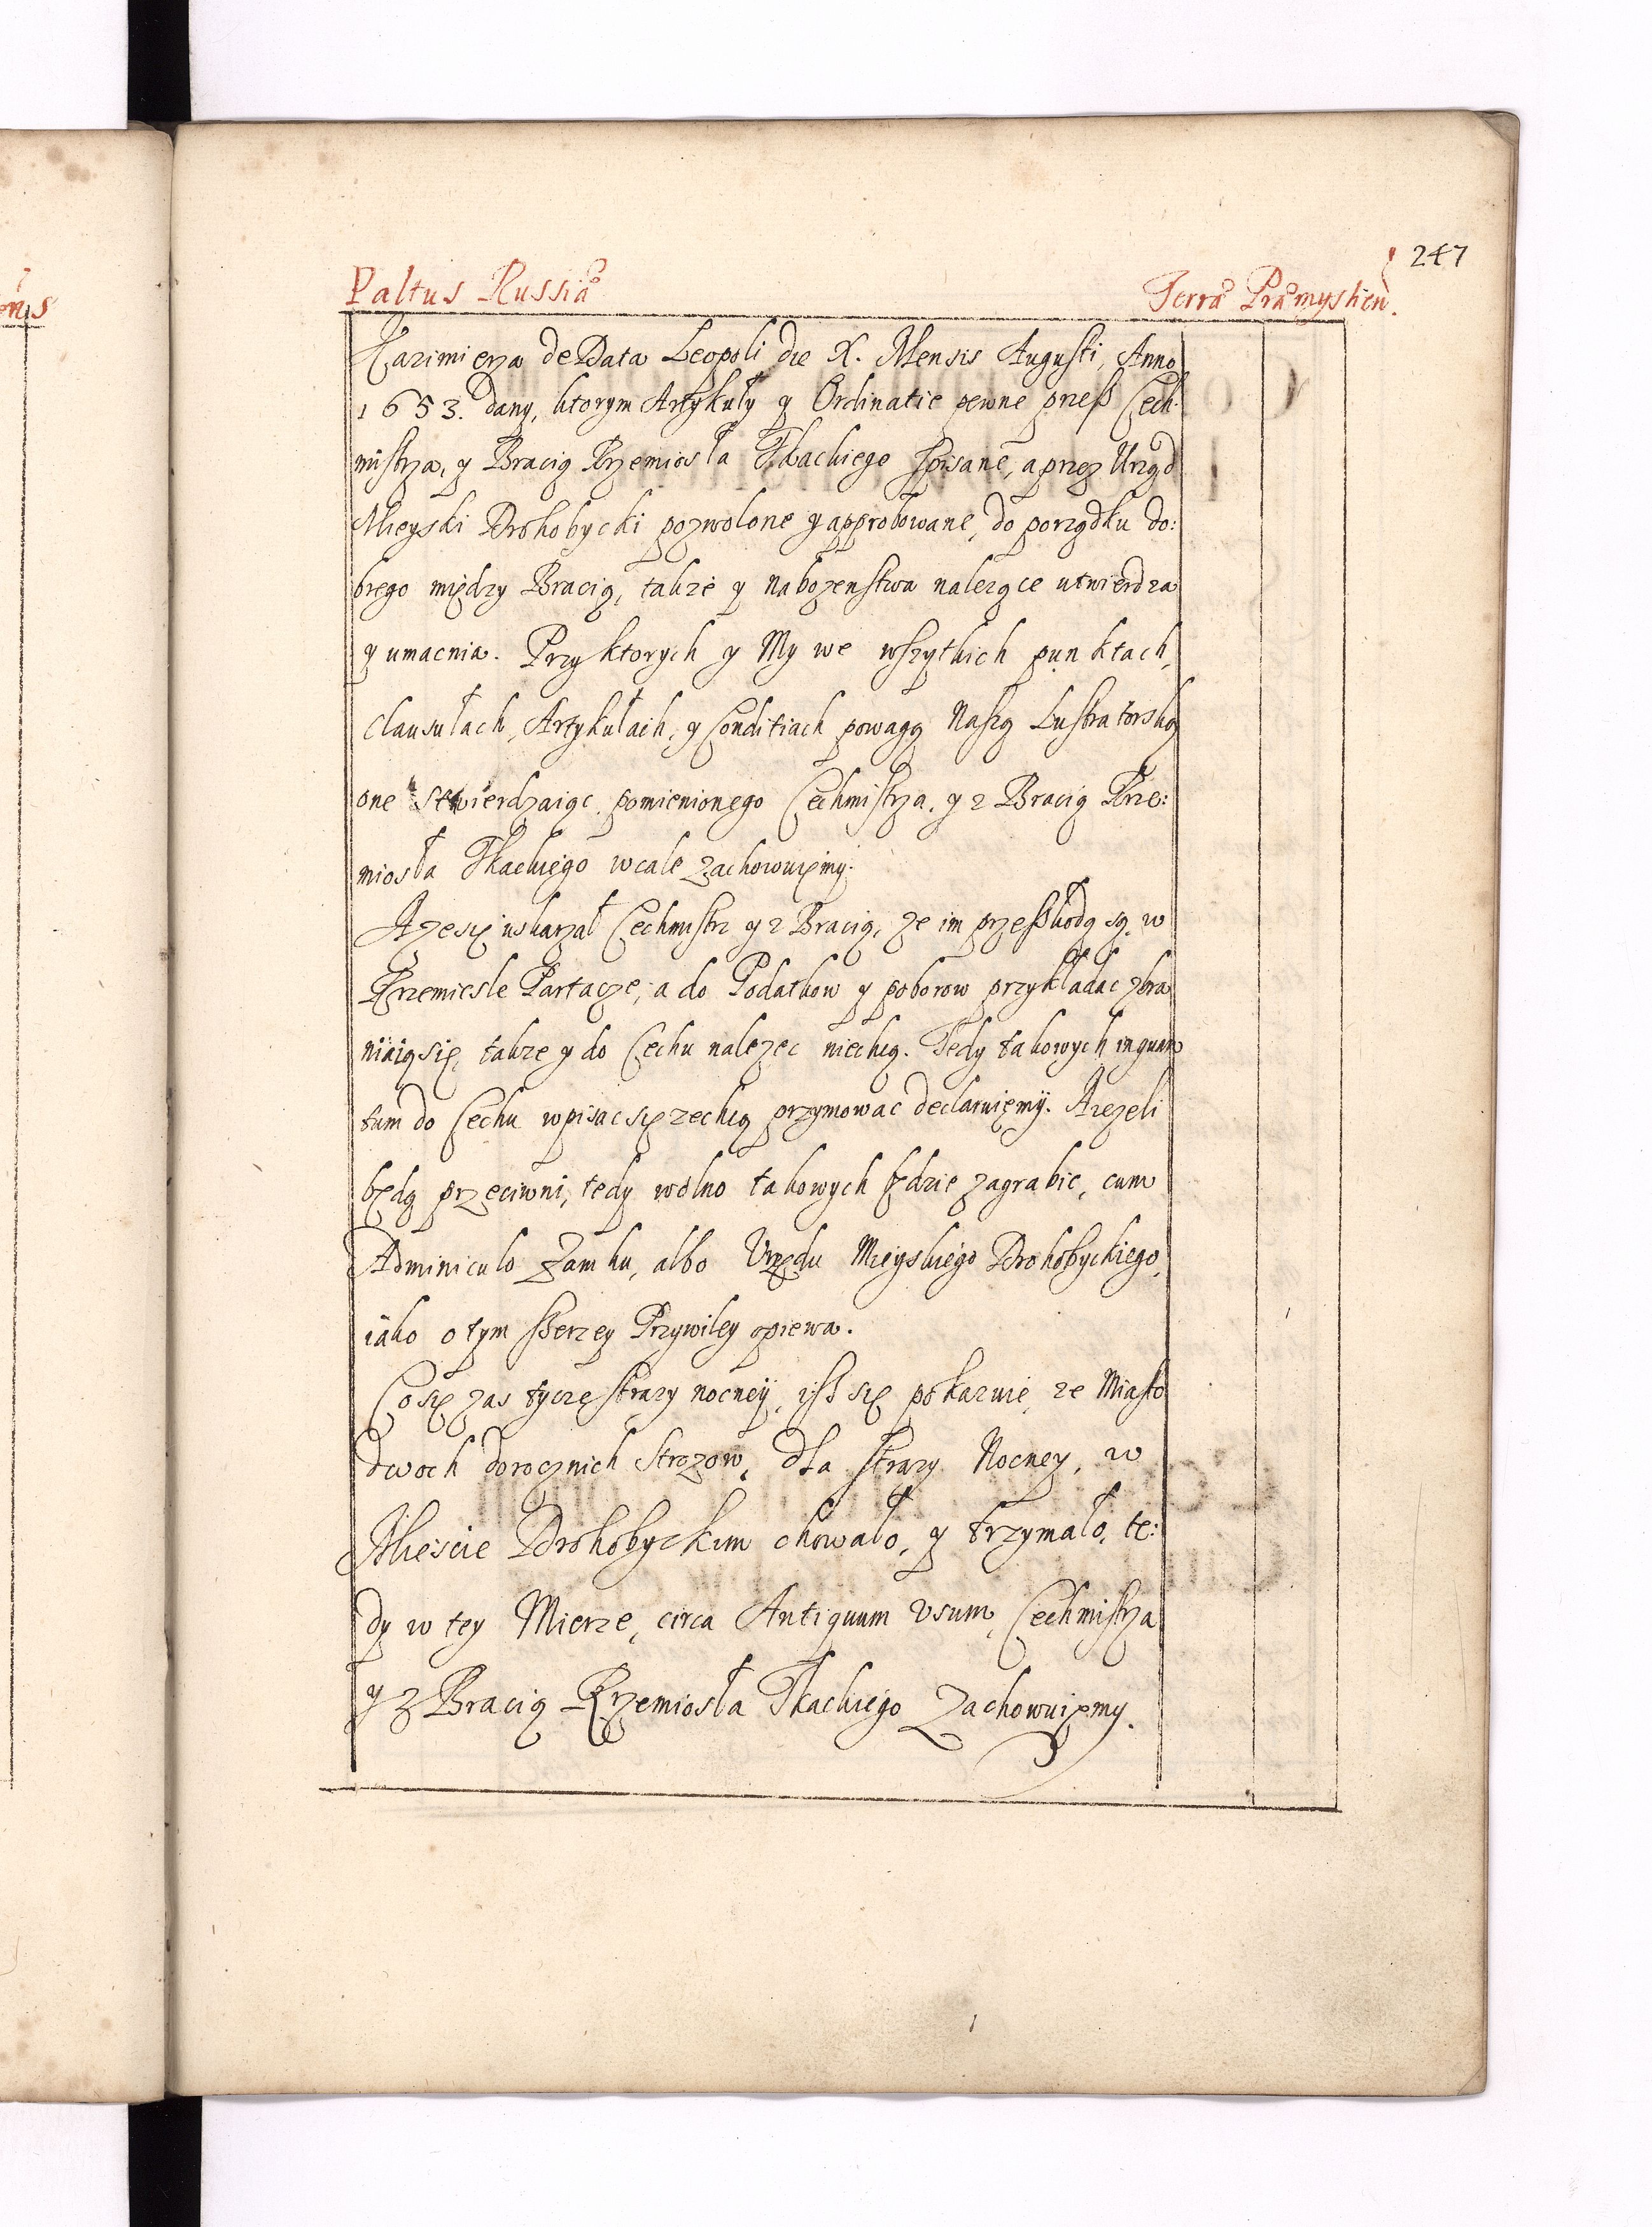 247
Paltus Russiæ
Terræ Præmyslien.
Kazimierza de Data Leopoli die X. Mensis Augusti, Anno
1653. dany, ktorym Artykuły y Ordinatie pewne przeß Cech-
mistrza, y Bracią Rzemiosła Tkackiego spisane, a przez Urząd
Mieyski Drohobycki pozwolone y approbowane, do porządku do:
brego między Bracią, także y nabozenstwa nalezące utwierdza
y umacnia. Przy ktorych y My we wszytkich punktach,
Clausułach, Artykułach, y Conditiach powagą Naszą Lustratorską
one stwierdzaiąc pomienionego Cechmistrza, y z Bracią Rze:
miosła Tkackiego wcale zachowuięmy.
A ze się uskarzał Cechmistrz y z Bracią, ze im przeßkodą są, w
Rzemiesle Partacze, a do Podatkow y poborow przykładac zbra
niaią się, takze y do Cechu nalezec niechcą. Tedy takowych inquan
tum do Cechu wpisac się zechcą przymowac declaruięmy. A iezeli
będą przeciwni, tedy wolno takowych będzie zagrabic, cum
Adminiculo Zamku, albo Urzędu Mieyskiego Drohobyckiego,
iako o tym sserzey Przywiley opiewa.
Co się zas tycze strazy nocney, iß się pokazuie, ze Miasto
dwoch dorocznich Strozow, dla strazy Nocney, w
Miescie Drohobyckim chowało, y trzymało, te:
dy w tey Mierze, circa Antiquum Usum, Cechmistrza
y z Bracią Rzemiosła Tkackiego Zachowuięmy.